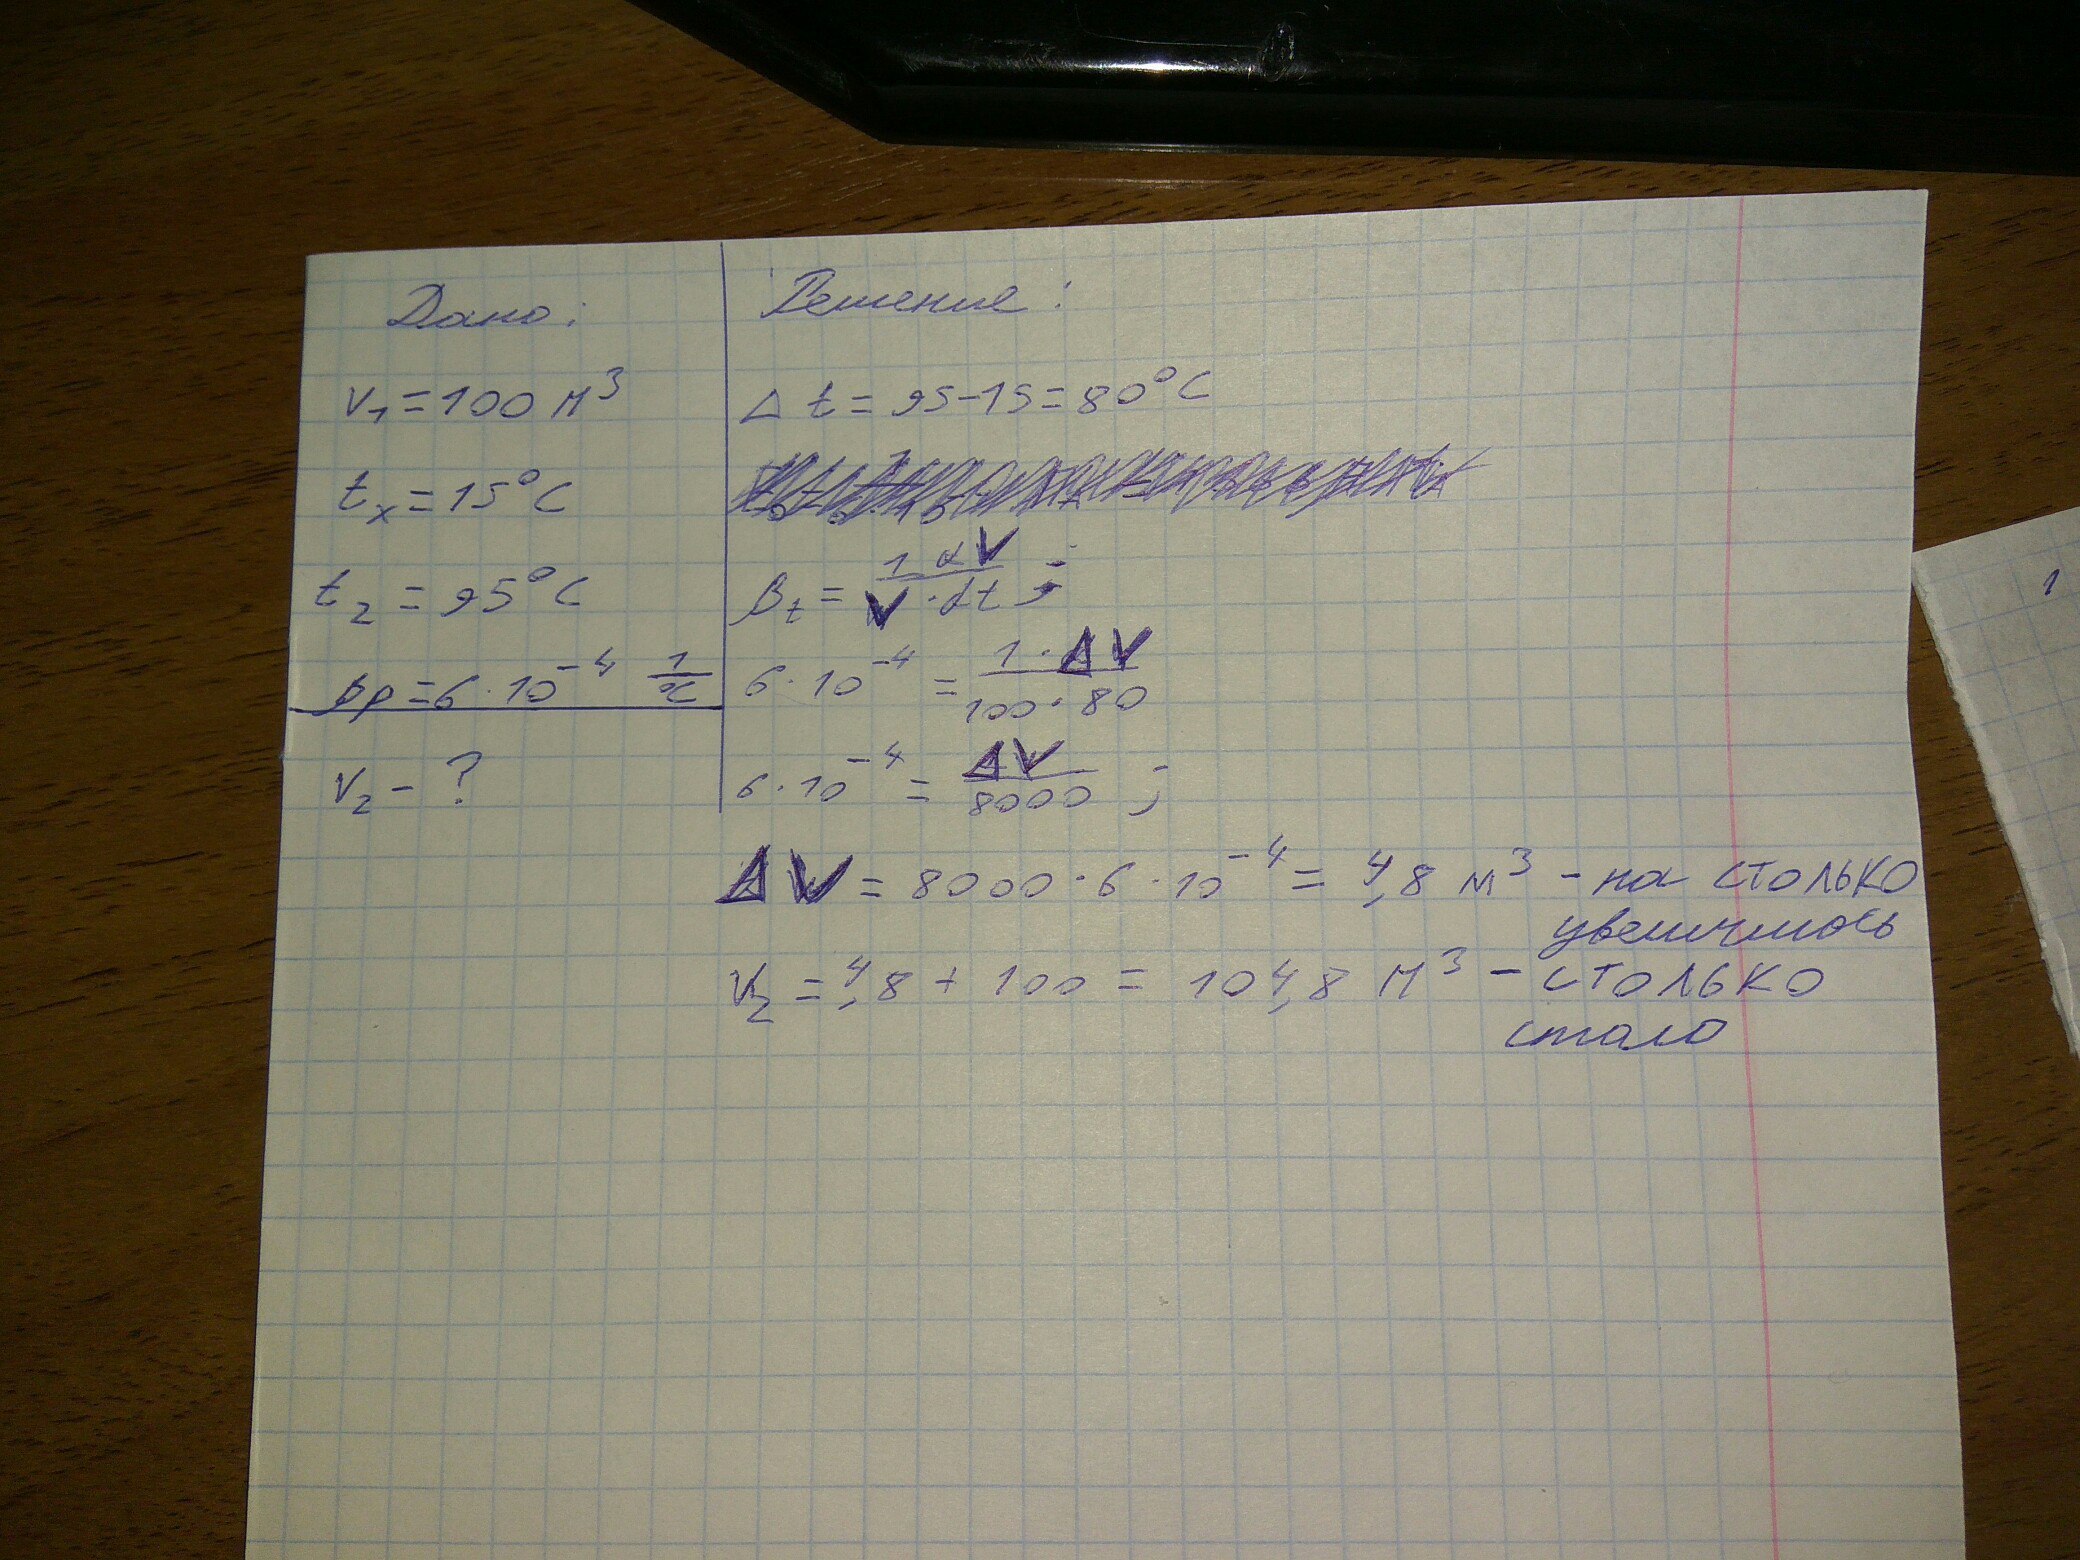 Дано:
V₁ = 100 м³
tₓ = 15°C
t₂ = 95°C
βp = 6 · 10⁻⁴ 1/°C
V₂ - ?
Решение:
Δ t = 95-15 = 80°C
βt = 1 · dV / V · dt ;
6 · 10⁻⁴ = 1 · ΔV / 100 · 80
6 · 10⁻⁴ = ΔV / 8000 ;
ΔV = 8000 · 6 · 10⁻⁴ = 4,8 м³ - на столько
увеличилось
V₂ = 4,8 + 100 = 104,8 м³ - столько
стало
1